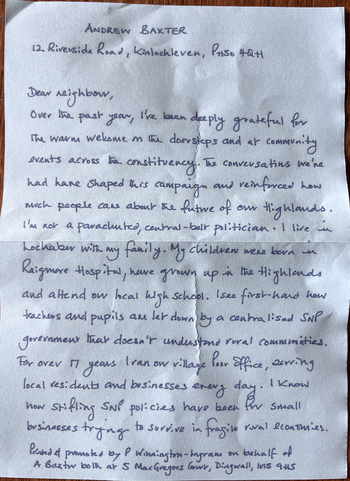 ANDREW BAXTER
12 Riverside Road, Kinlochleven, PH50 4QH
Dear neighbour,
Over the past year, I've been deeply grateful for
the warm welcome on the doorsteps and at community
events across the constituency. The conversations we've
had have shaped this campaign and reinforced how
much people care about the future of our Highlands.
I'm not a parachuted, central-belt politician. I live in
Lochaber with my family. My children were born in
Raigmore Hospital, have grown up in the Highlands
and attend our local high school. I see first-hand how
teachers and pupils are let down by a centralised SNP
government that doesn't understand rural communities.
For over 17 years I ran our village Post Office, serving
local residents and businesses every day. I know
how stifling SNP policies have been for small
businesses trying to survive in fragile rural economies.
Printed & promoted by P Winnington-Ingrams on behalf of
A Baxter both at 5 MacGregors Court, Dingwall, IV15 9HS